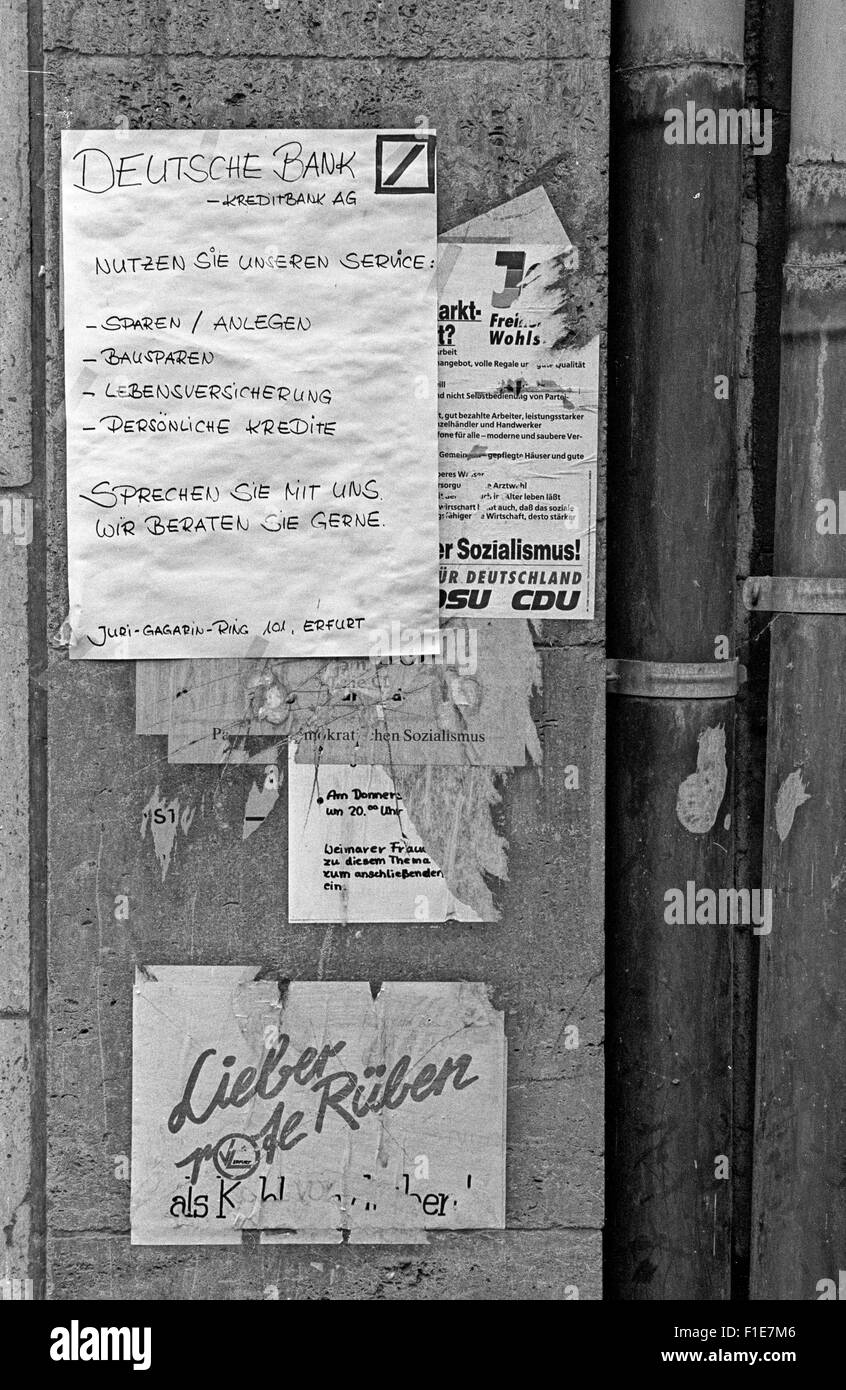 DEUTSCHE BANK
- KREDITBANK AG
NUTZEN SIE UNSEREN SERVICE:
- SPAREN / ANLEGEN
- BAUSPAREN
- LEBENSVERSICHERUNG
- PERSÖNLICHE KREDITE
SPRECHEN SIE MIT UNS.
WIR BERATEN SIE GERNE.
JURI-GAGARIN-RING 101, ERFURT
arkt-
t?
Wohls
rbeit
angebot, volle Regale
Qualität
nd nicht Selbstbedienung von Partei-
t, gut bezahlte Arbeiter, leistungsstarker
zelhändler und Handwerker
fone für alle – moderne und saubere Ver-
Gemein
gepflegte Häuser und gute
Arztwahl
Alter leben läßt
auch, daß das soziale
Wirtschaft, desto stärker
er Sozialismus!
ÜR DEUTSCHLAND
DSU CDU
Pa
mokrat
chen Sozialismus
ST
Am Donners
um 20.00 Uhr
Weimarer Frau
zu diesem Thema
zum anschließenden
ein.
Lieber
rote Rüben
als K
alamy
Image ID: F1E7M6
www.alamy.com